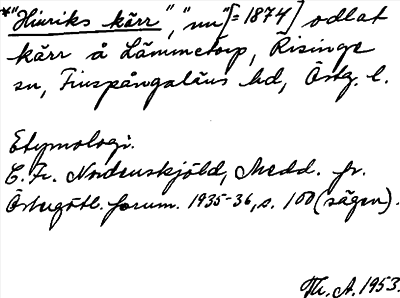 *"Hinriks kärr", "nu" [= 1874] odlat
kärr å Lämmetorp, Risinge
sn, Finspångaläns hd, Östg. l.
Etymologi.
C. Fr. Nordenskjöld, Medd. fr.
Östergötl. fornm. 1935-36, s. 100 (sägen).
Th. A. 1953.